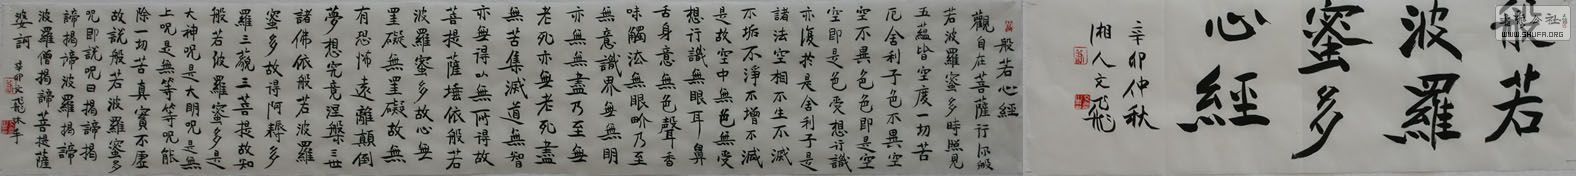 般若
波羅
蜜多
心經
辛卯仲秋
湘人文飛
般若心經
觀自在菩薩行深般
若波羅蜜多時照見
五蘊皆空度一切苦
厄舍利子色不異空
空不異色色即是空
空即是色受想行識
亦復於是舍利子是
諸法空相不生不滅
不垢不淨不增不減
是故空中無色無受
想行識無眼耳鼻
舌身意無色聲香
味觸法無眼界乃至
無意識界無無明
亦無無盡乃至無
老死亦無老死盡
無苦集滅道無智
亦無得以無所得故
菩提薩埵依般若
波羅蜜多故心無
罣礙無罣礙故無
有恐怖遠離顛倒
夢想究竟涅槃三世
諸佛依般若波羅
蜜多故得阿耨多
羅三藐三菩提故知
般若波羅蜜多是
大神呪是大明呪是無
上呪是無等等呪能
除一切苦真實不虛
故說般若波羅蜜多
呪即說呪曰揭諦揭
諦揭諦波羅揭諦
波羅僧揭諦菩提薩
婆訶
辛卯文飛沐手
WWW.SHUFA.ORG